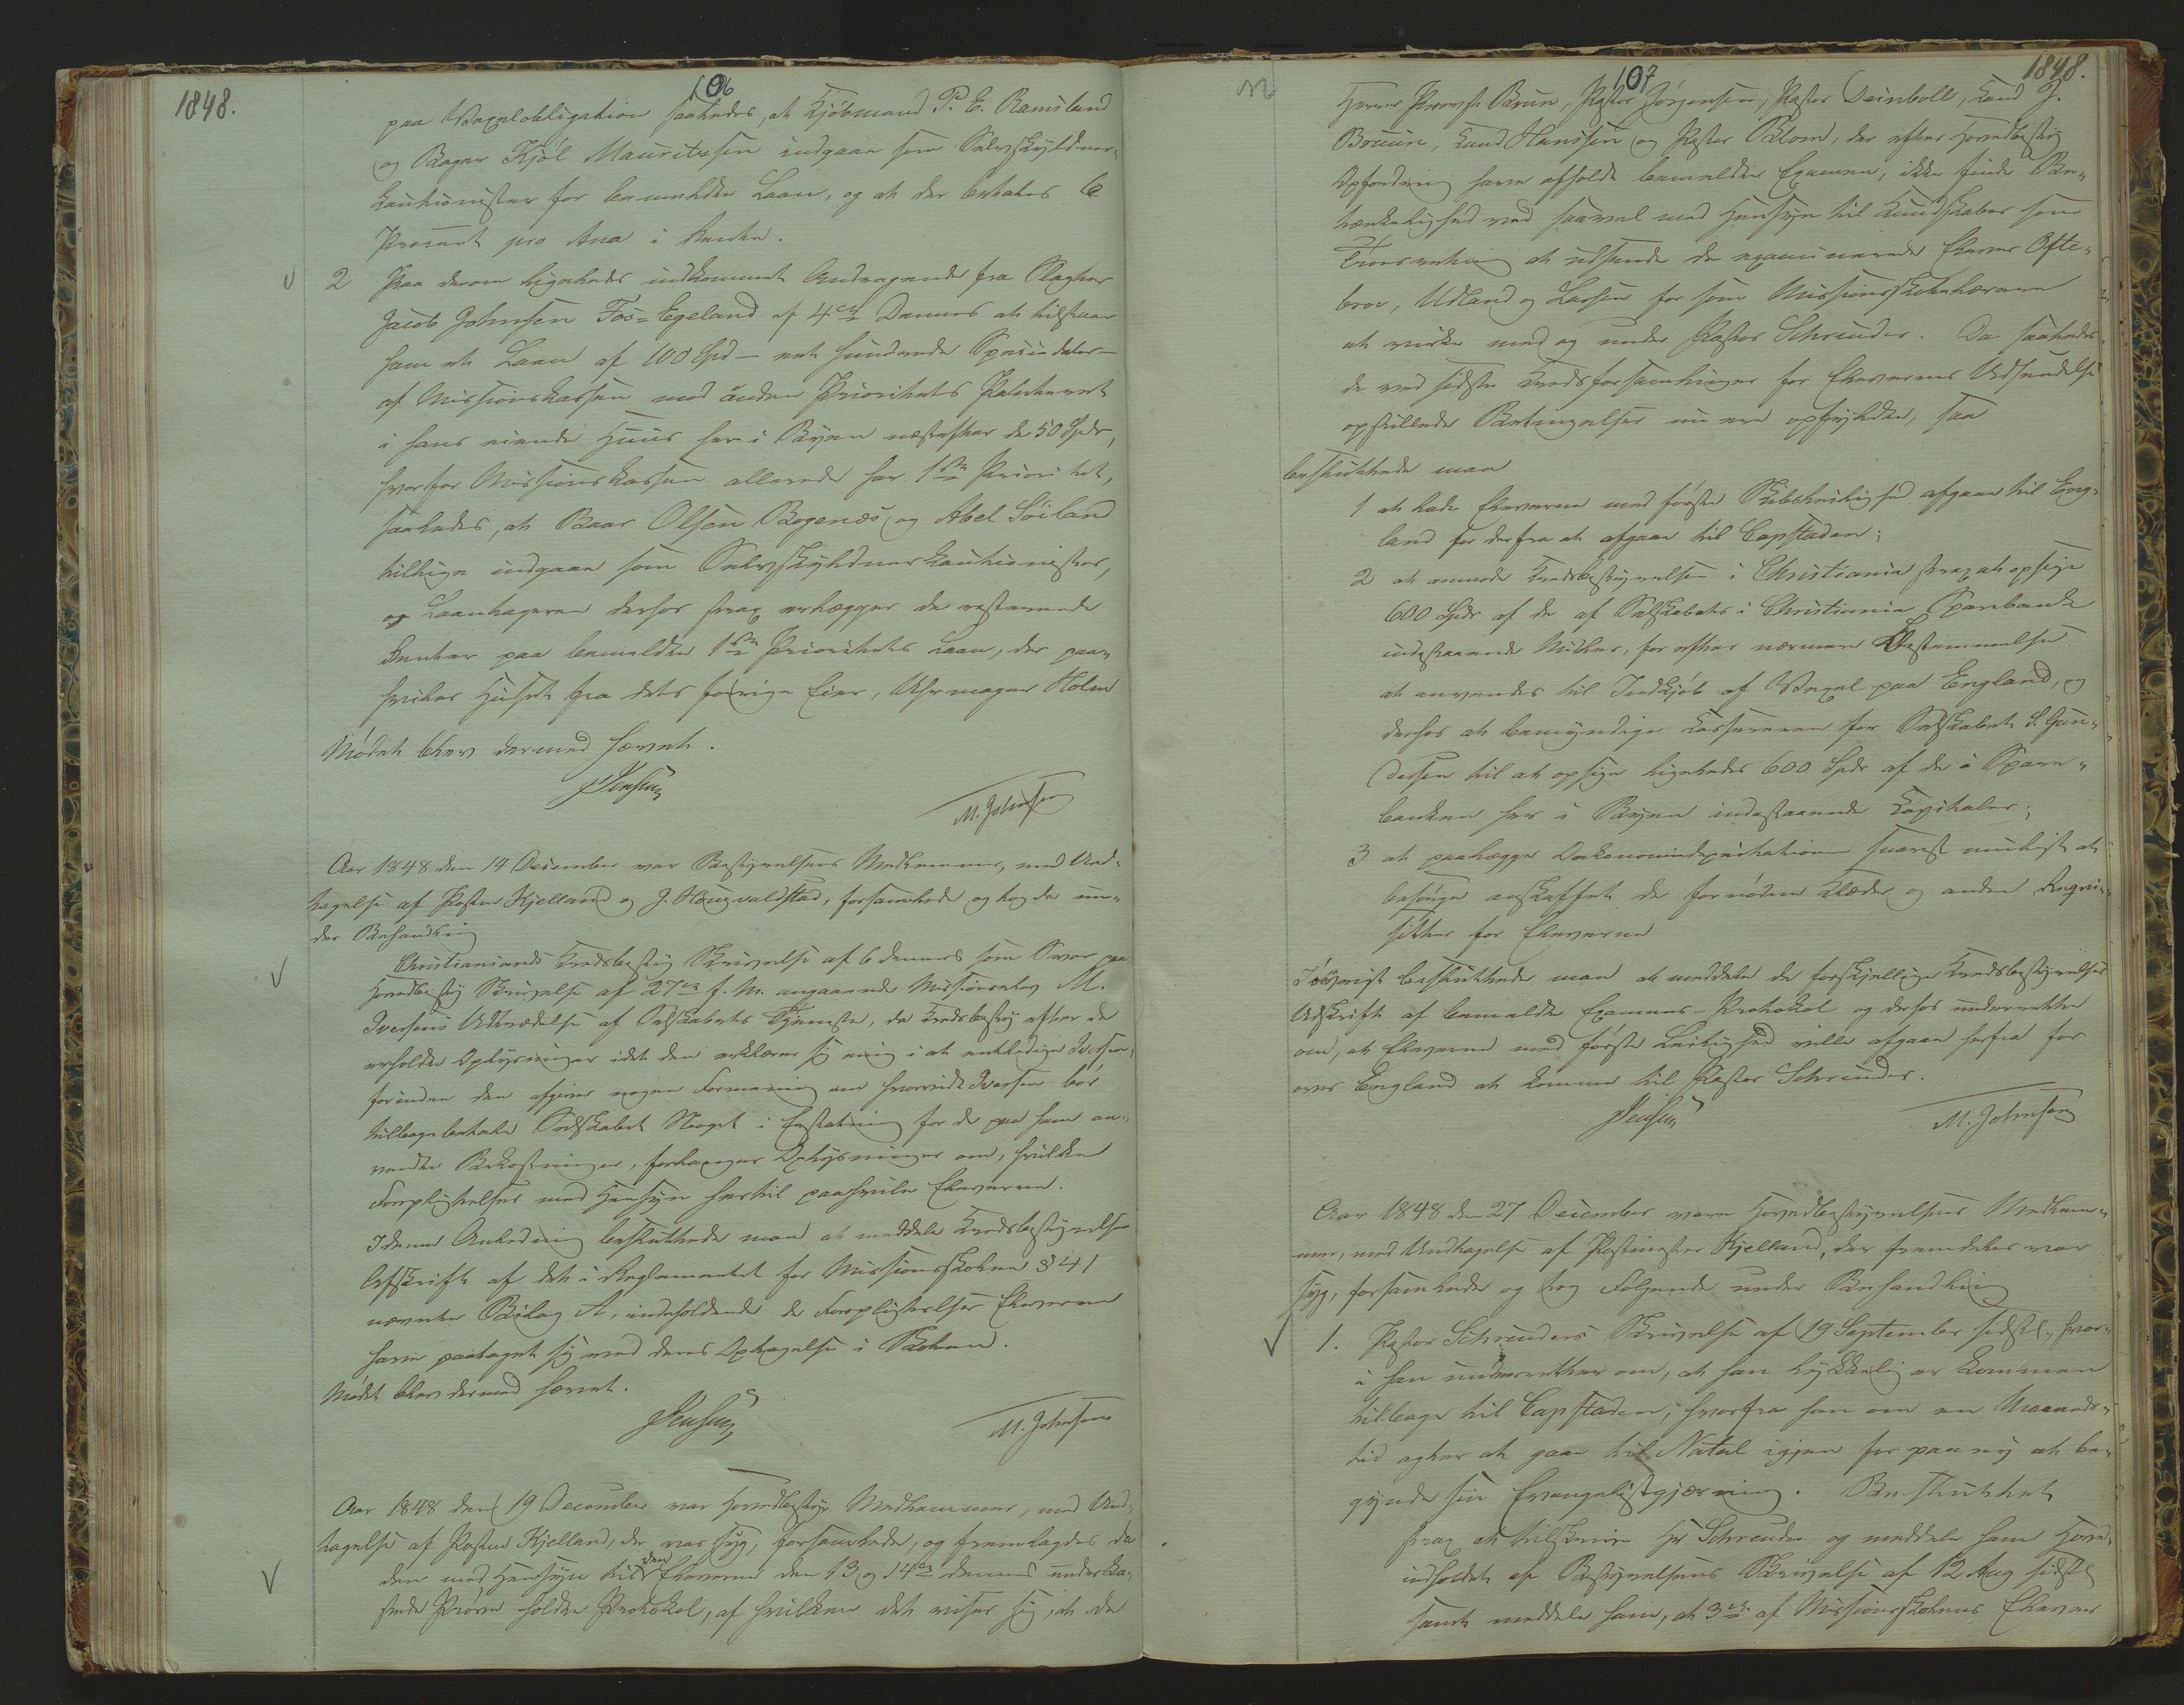 1848.
106
paa Vexelobligation saaledes, at Kjöbmand P. E. Ramsland
og Bager Kjöl Mauritzsen indgaae som Selvskyldner-
kautionister for bemeldte Laan, og at der betales 6
Procent pro Ana i Rente.
2 Paa derom ligeledes indkommet Andragende fra Slagter
Jacob Johnsen Fos-Egeland af 4de Dennes at tilstaae
ham et Laan af 100 Spd - et hundrede Speciedaler -
af Missionskassen mod anden Prioritets Panteret
i hans eiende Huus her i Byen næstefter de 50 Spdr,
hvorfor Missionskassen allerede har 1ste Prioritet,
saaledes, at Baar Olsen Bogenæs og Abel Söiland
tillige indgaae som Selvskyldnerkautionister,
og Laantageren derhos strax erlægger de resterende
Renter paa bemeldte 1ste Prioritets Laan, der paa-
hviler Huset fra dets forrige Eier, Uhrmager Holm
Mödet blev dermed hævet.
Jensen
M. Johnsen
Aar 1848 den 14 December var Bestyrelsens Medlemmer, med Und-
tagelse af Pastor Kjelland og J. Haugvaldstad, forsamlede og tog da un-
der Behandling
Christiansands Kredsbestyr Skrivelse af 6 dennes som Svar paa
Hovedbesty Skrivelse af 27de f. M. angaaende Missionselev M.
Iversens Udtrædelse af Selskabets Tjeneste, da Kredsbesty efter de
erholdte Oplysninger idet den erklærer sig enig i at entledige Iversen,
forinden den afgiver nogen Formening om hvorvidt Iversen bör
tilbagebetale Selskabet Noget i Erstatning for de paa ham an-
vendte Bekostninger, forlanger Oplysninger om, hvilken
Forpligtelser med Hensyn hertil paahvile Eleverne.
I denne Anledning besluttede man at meddele Kredsbestyrelsen
Afskrift af det i Reglementet for Missionsskolen § 41
nævnte Bilag A, indeholdende de Forpligtelser Eleverne
have paataget sig ved deres Optagelse i Skolen.
Mödet blev dermed hævet.
Jensen
M. Johnsen
Aar 1848 den 19 December var Hovedbestyr Medlemmer, med Und-
tagelse af Pastor Kjelland, der var syg, forsamlede, og fremlagdes da
den med Hensyn til den Eleverne den 13 og 14de dennes underka-
stede Pröve holdte Protokol, af hvilken det viser sig, at da
107
1848.
Herrer Provst Bruun, Pastor Jörgensen, Pastor Deinboll, Cand J.
Bruun, Cand Hanssen og Pastor Blom, der efter Hovedbesty
Opfordring have afholdt bemeldte Examen, ikke finde Be-
tænkelighed ved saavel med Hensyn til Kundskaber som
Troesretning at udsende de examinerede Elever Ofte-
broe, Udland og Larsen for som Missionsskolelærere
at virke med og under Pastor Schreuder. Da saaledes
de ved sidste Kredsforsamlinger for Elevernes Udsendelse
opstillede Betingelser nu ere opfyldte, saa
besluttede man
1 at lade Eleverne med förste Skibsleilighed afgaae til Eng-
land for derfra at afgaae til Capstaden;
2 at anmode Kredsbestyrelsen i Christiania strax at opsige
600 Spdr af de af Selskabets i Christiania Sparebank
indestaaende Midler, for efter nærmere Bestemmelse
at anvendes til Indkjöb af Vexel paa England, og
derhos at bemyndige Kassereren for Selskabet S. Gun-
dersen til at opsige ligeledes 600 Spdr af de i Spare-
banken her i Byen indestaaende Kapitaler;
3 at paalægge Oekonomideputationen snarest muligst at
besörge anskaffet de fornödne Klæder og andre Reqvi-
siter for Eleverne
Iövrigt besluttede man at meddele de forskjellige Kredsbestyrelser
Udskrift af bemeldte Examens-Protokol og derhos underrette
om, at Eleverne med förste Leilighed ville afgaae herfra for
over England at komme til Pastor Schreuder.
Jensen
M. Johnsen
Aar 1848 den 27 December vare Hovedbestyrelsens Medlem-
mer, med Undtagelse af Postmester Kjelland, der fremdeles var
syg, forsamlede og tog Fölgende under Behandling
1. Pastor Schreuders Skrivelse af 19 September sidstl, hvor-
i han underretter om, at han lykkelig er kommen
tilbage til Capstaden, hvorfra han om en Maaneds-
tid agter at gaae til Natal igjen for paany at be-
gynde sin Evangelistgjerning. Besluttet
strax at tilskrive Hr Schreuder og meddele ham Hoved-
indholdet af Bestyrelsens Skrivelse af 12 Aug sidstl
samt meddele ham, at 3de af Missionsskolens Elever